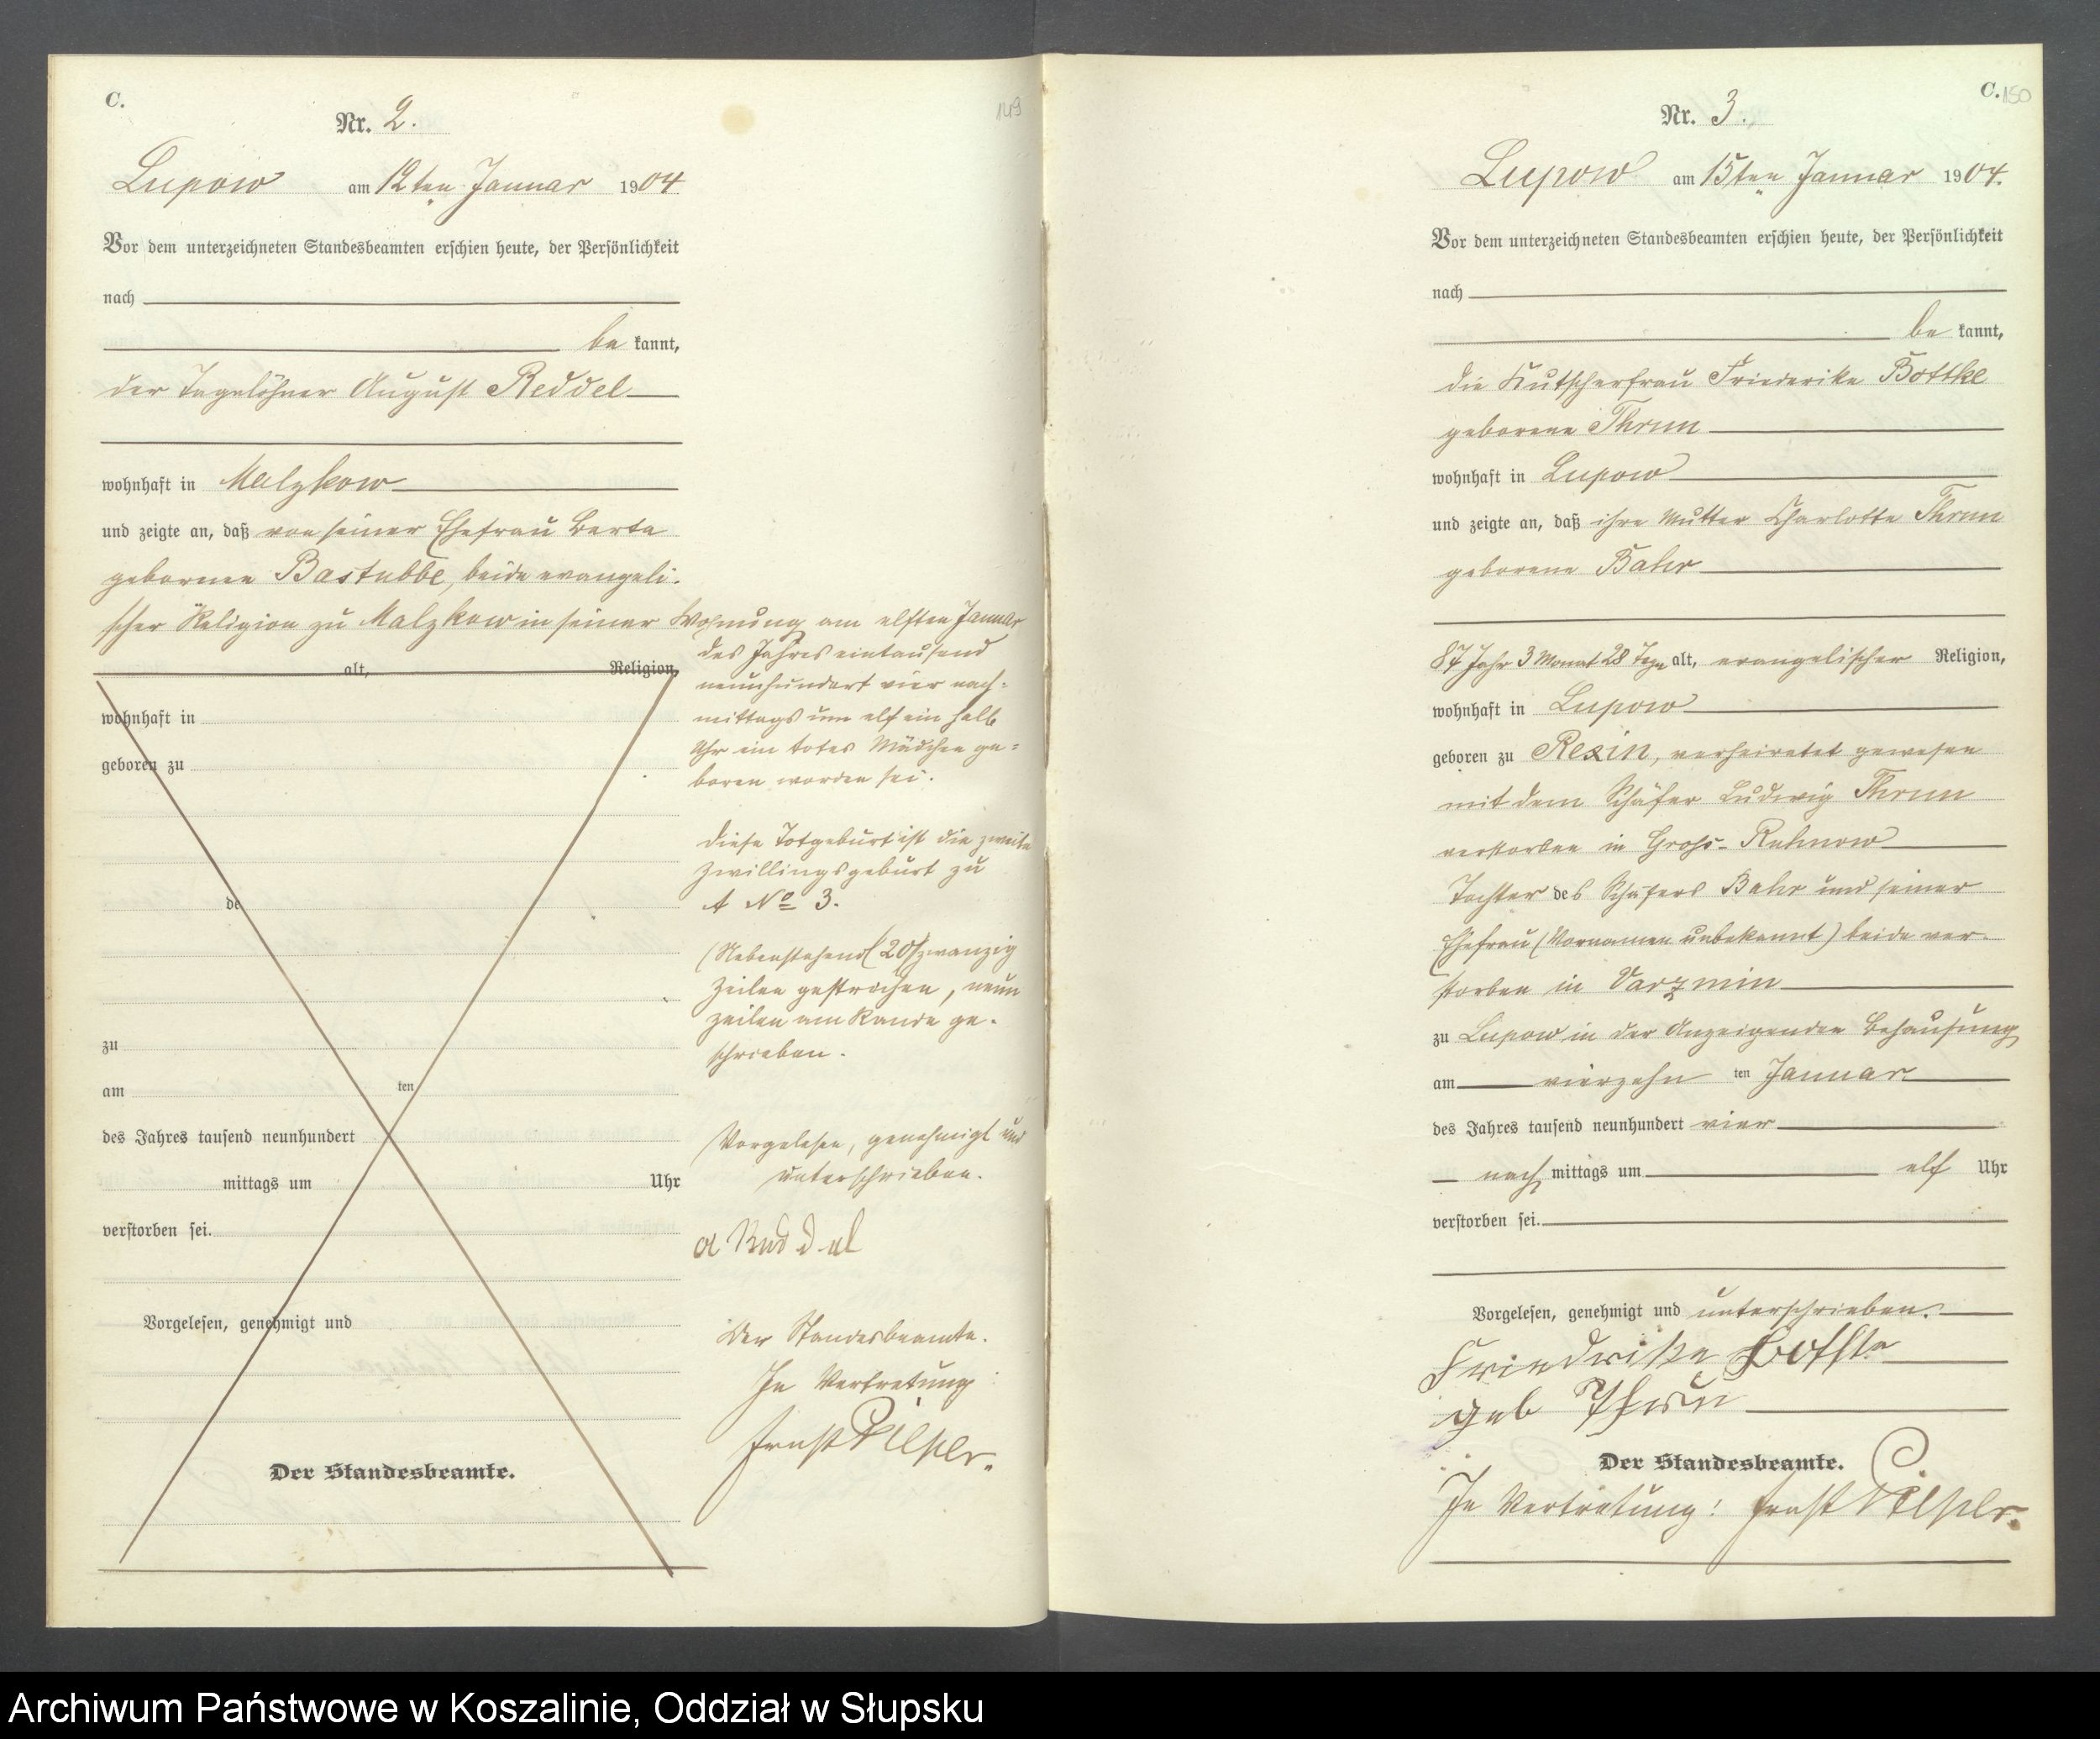 C.
149
Nr. 2.
Lupow am 12ten Januar 1904
Vor dem unterzeichneten Standesbeamten erschien heute, der Persönlichkeit
nach
be kannt,
der Tagelöhner August Reddel
wohnhaft in Malzkow
und zeigte an, daß von seiner Ehefrau Berta
geborenen Bastubbe, beide evangeli-
scher Religion zu Malzkow in seiner Wohnung am elften Januar
des Jahres eintausend
neunhundert vier nach-
mittags um elf ein halb
Uhr ein totes Mädchen ge-
boren worden sei.
Diese Totgeburt ist die zweite
Zwillingsgeburt zu
A No 3.
(Nebenstehend (20) zwanzig
Zeilen gestrichen, neun
Zeilen am Rande ge-
schrieben.
Vorgelesen, genehmigt und
unterschrieben.
A Reddel
Der Standesbeamte.
In Vertretung
Ernst
alt, Religion,
wohnhaft in
geboren zu
de
zu
am ten
des Jahres tausend neunhundert
mittags um Uhr
verstorben sei.
Vorgelesen, genehmigt und
Der Standesbeamte.
C.
150
Nr. 3.
Lupow am 15ten Januar 1904.
Vor dem unterzeichneten Standesbeamten erschien heute, der Persönlichkeit
nach
be kannt,
die Kutscherfrau Friederike Bottke
geborene Thrun
wohnhaft in Lupow
und zeigte an, daß ihre Mutter Charlotte Thrun
geborene Bahr
87 Jahr 3 Monat 28 Tage alt, evangelischer Religion,
wohnhaft in Lupow
geboren zu Rexin, verheiratet gewesen
mit dem Schäfer Ludwig Thrun
verstorben in Groß-Ruhnow
Tochter des Schäfers Bahr und seiner
Ehefrau (Vornamen unbekannt) beide ver-
storben in Varzmin
zu Lupow in der Anzeigenden Behausung
am vierzehn ten Januar
des Jahres tausend neunhundert vier
nach mittags um elf Uhr
verstorben sei.
Vorgelesen, genehmigt und unterschrieben.
Friedrike Bottke
geb Thrun
Der Standesbeamte.
In Vertretung: Ernst
Archiwum Państwowe w Koszalinie, Oddział w Słupsku